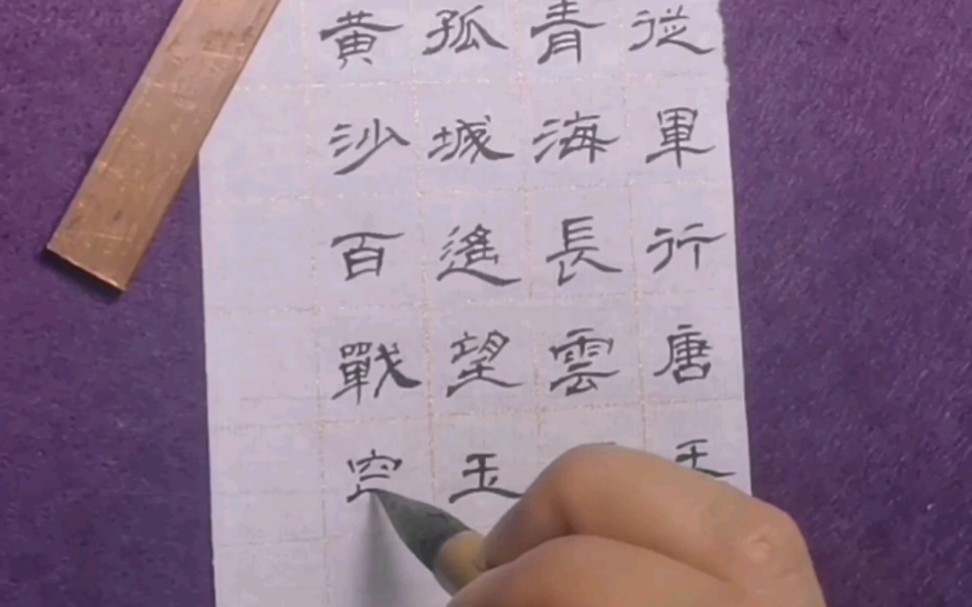 從軍行唐王
青海長雲
孤城遙望玉
黄沙百戰